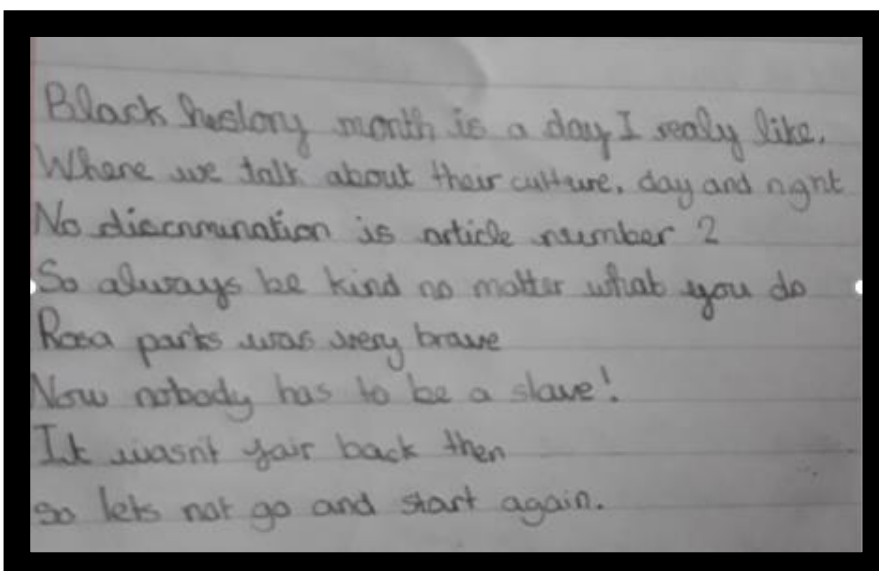 Black history month is a day I realy like.
Where we talk about their culture, day and night
No discrimination is article number 2
So always be kind no matter what you do
Rosa parks was very brave
Now nobody has to be a slave!
It wasn't fair back then
so lets not go and start again.